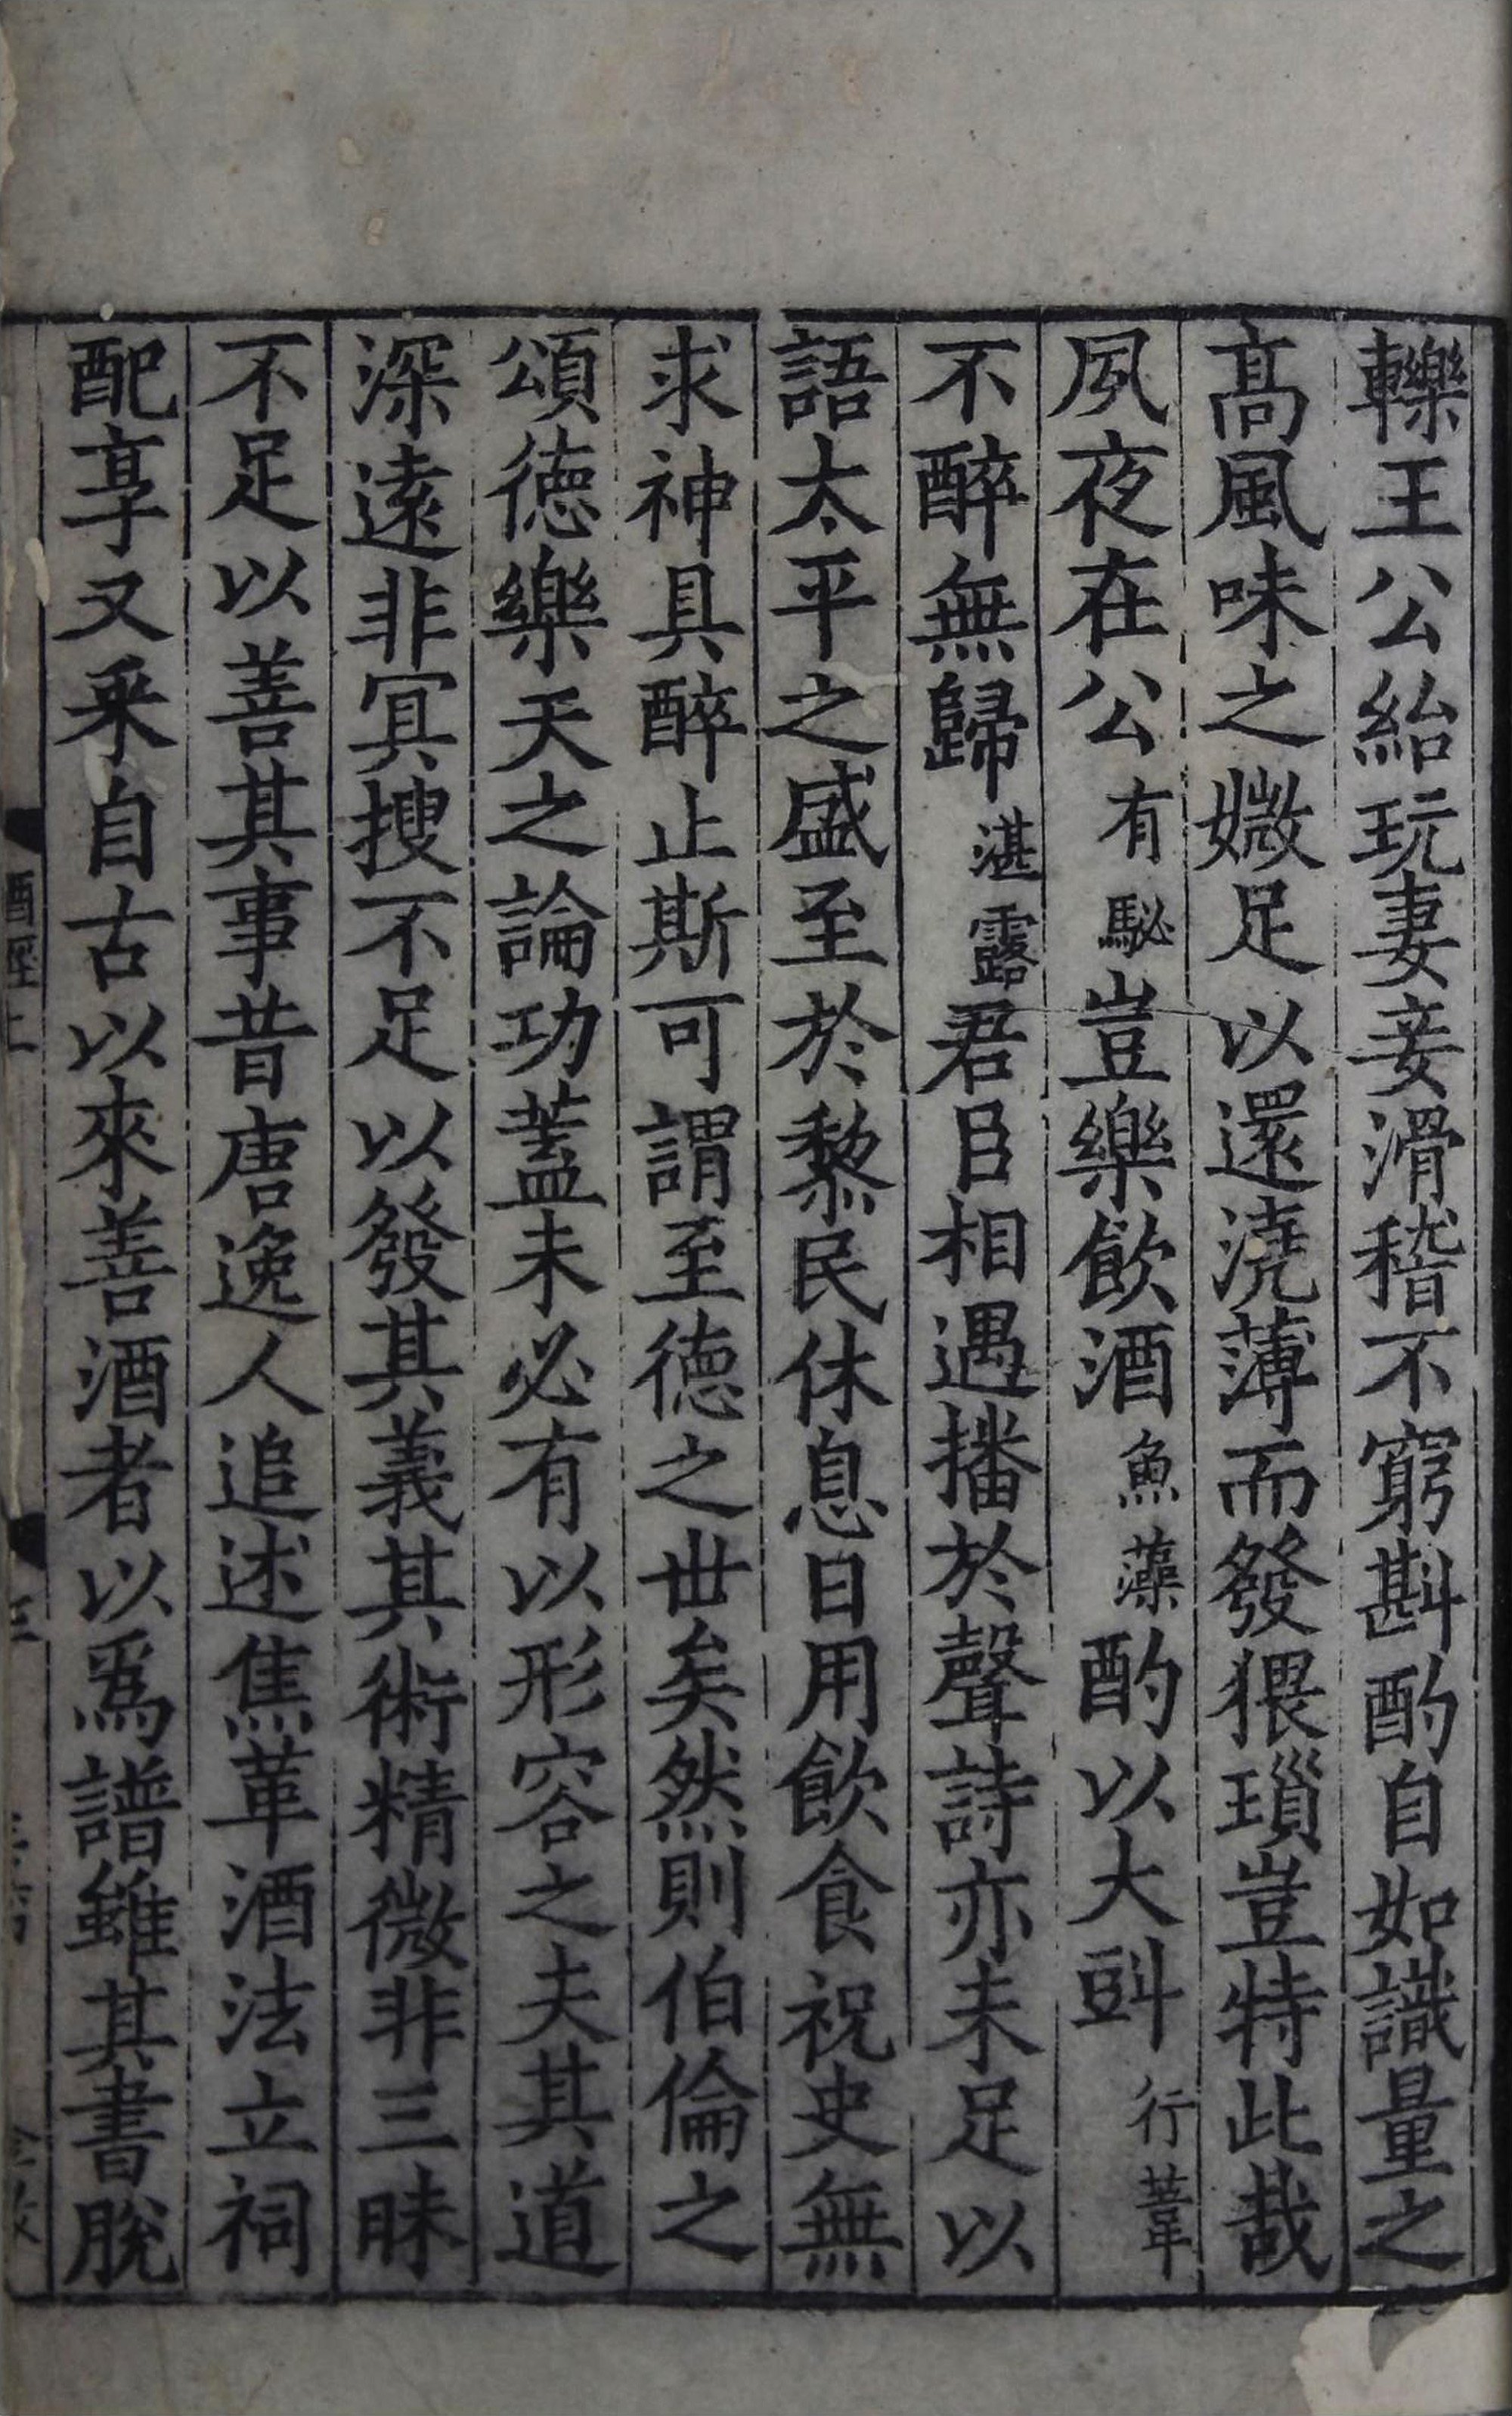 轢王公紿玩妻妾滑稽不窮斟酌自如識量之
髙風味之媺足以還澆薄而發猥瑣豈特此哉
夙夜在公有駜豈樂飲酒魚藻酌以大㪷行葦
不醉無歸湛露君臣相遇播於聲詩亦未足以
語太平之盛至於黎民休息日用飲食祝史無
求神具醉止斯可謂至德之世矣然則伯倫之
頌德樂天之論功蓋未必有以形容之夫其道
深逺非冥搜不足以發其義其術精微非三昧
不足以善其事昔唐逸人追述焦革酒法立祠
配享又采自古以來善酒者以爲譜雖其書脫
酒經上
三